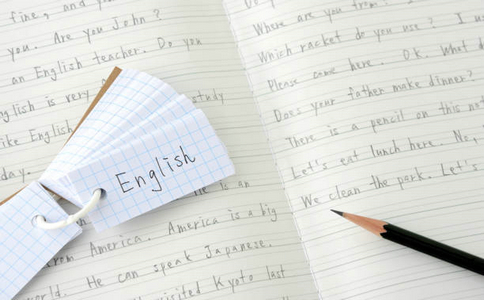 fine, and you?
you. Are you John?
an English teacher. Do you
English is very
study
like English
day.
English
is an
from America. America is a big
world. He can speak Japanese.
visited Kyoto last
Where are you from?
Which racket do you use? I us
Please come here. OK. What d
Does your father make dinner?
There is a pencil on this not
Let's eat lunch here. No,
We clean the park. Let's